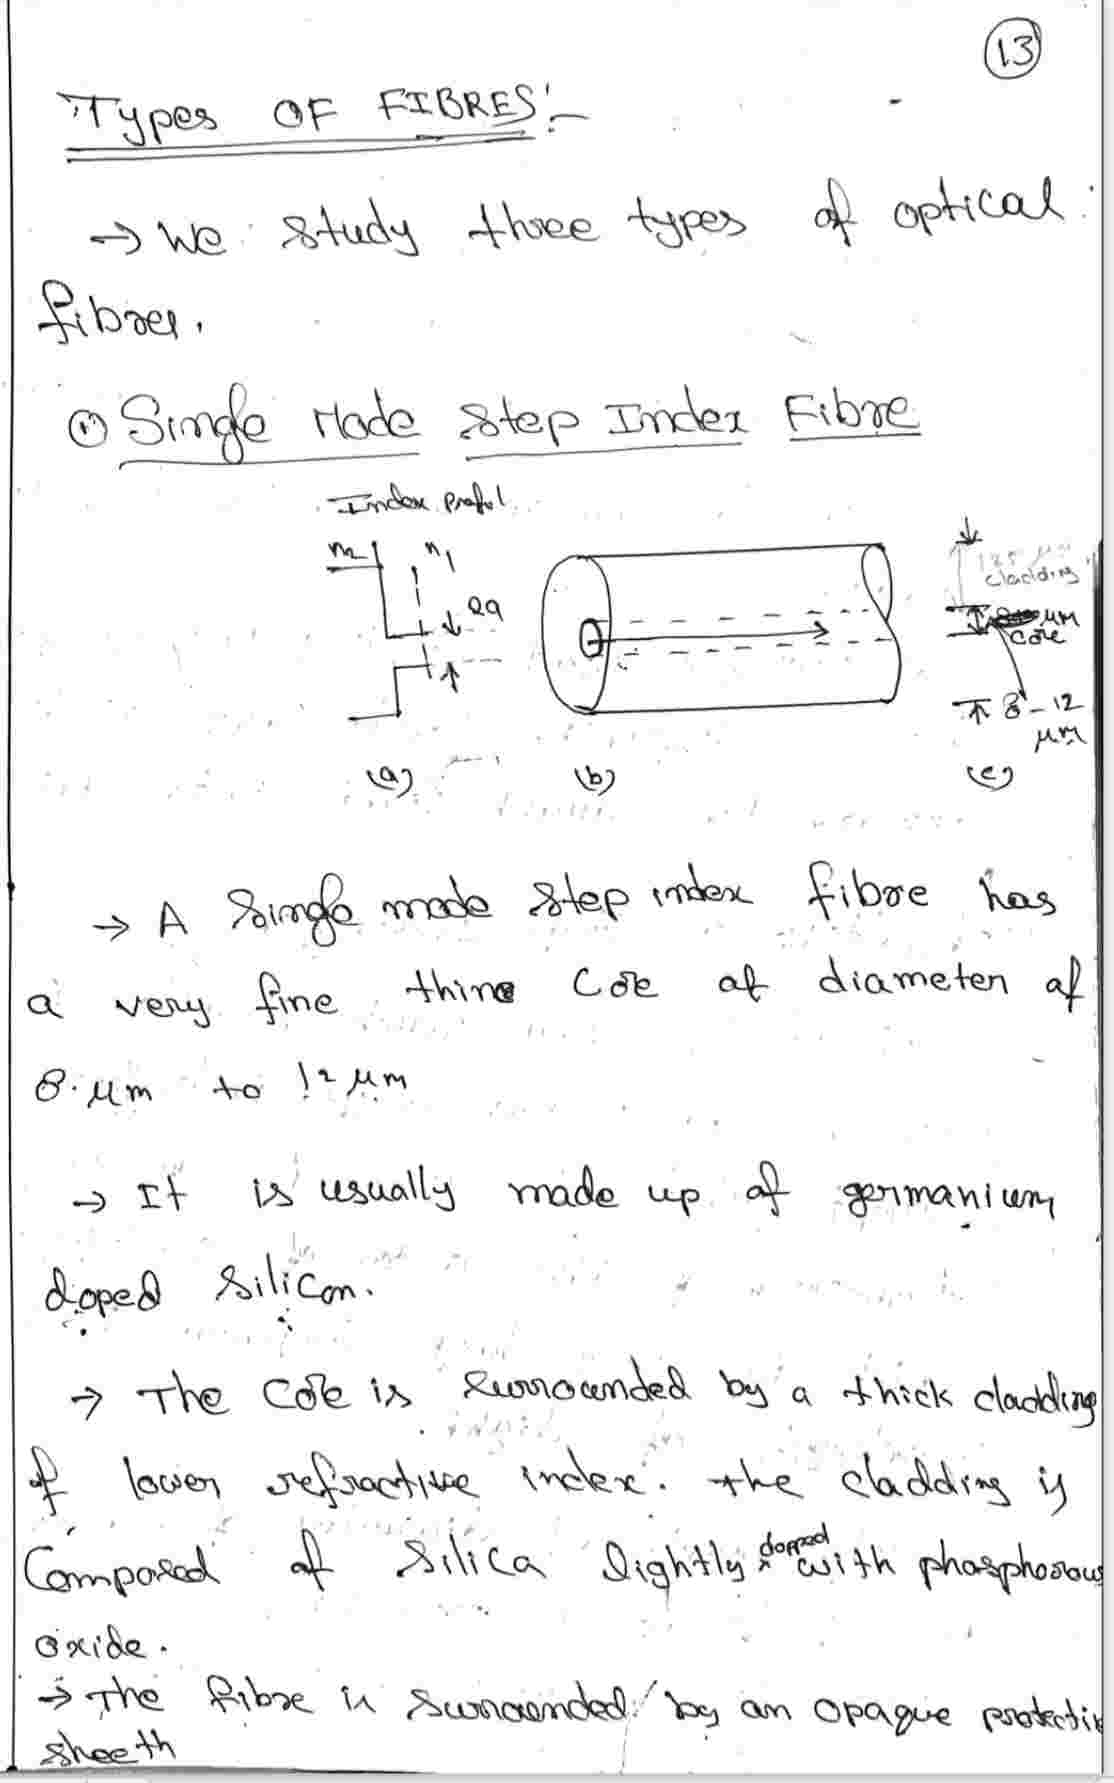 13
Types OF FIBRES :-
→ We study three types of optical
fibres.
① Single Mode Step Index Fibre
Index profil
n2 n1
2a
125 μm
cladding
μm
core
8-12
μm
(a) (b) (c)
→ A Single mode step index fibre has
a very fine thine core of diameter of
8 μm to 12 μm
→ It is usually made up of germanium
doped silicon.
→ The core is surrounded by a thick cladding
of lower refractive index. the cladding is
Composed of silica lightly dopped with phosphorous
oxide.
→ The fibre is surrounded by an opaque protectiv
sheeth